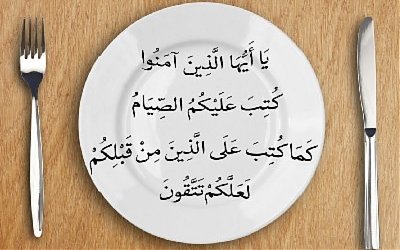 يَا أَيُّهَا الَّذِينَ آمَنُوا
كُتِبَ عَلَيْكُمُ الصِّيَامُ
كَمَا كُتِبَ عَلَى الَّذِينَ مِنْ قَبْلِكُمْ
لَعَلَّكُمْ تَتَّقُونَ